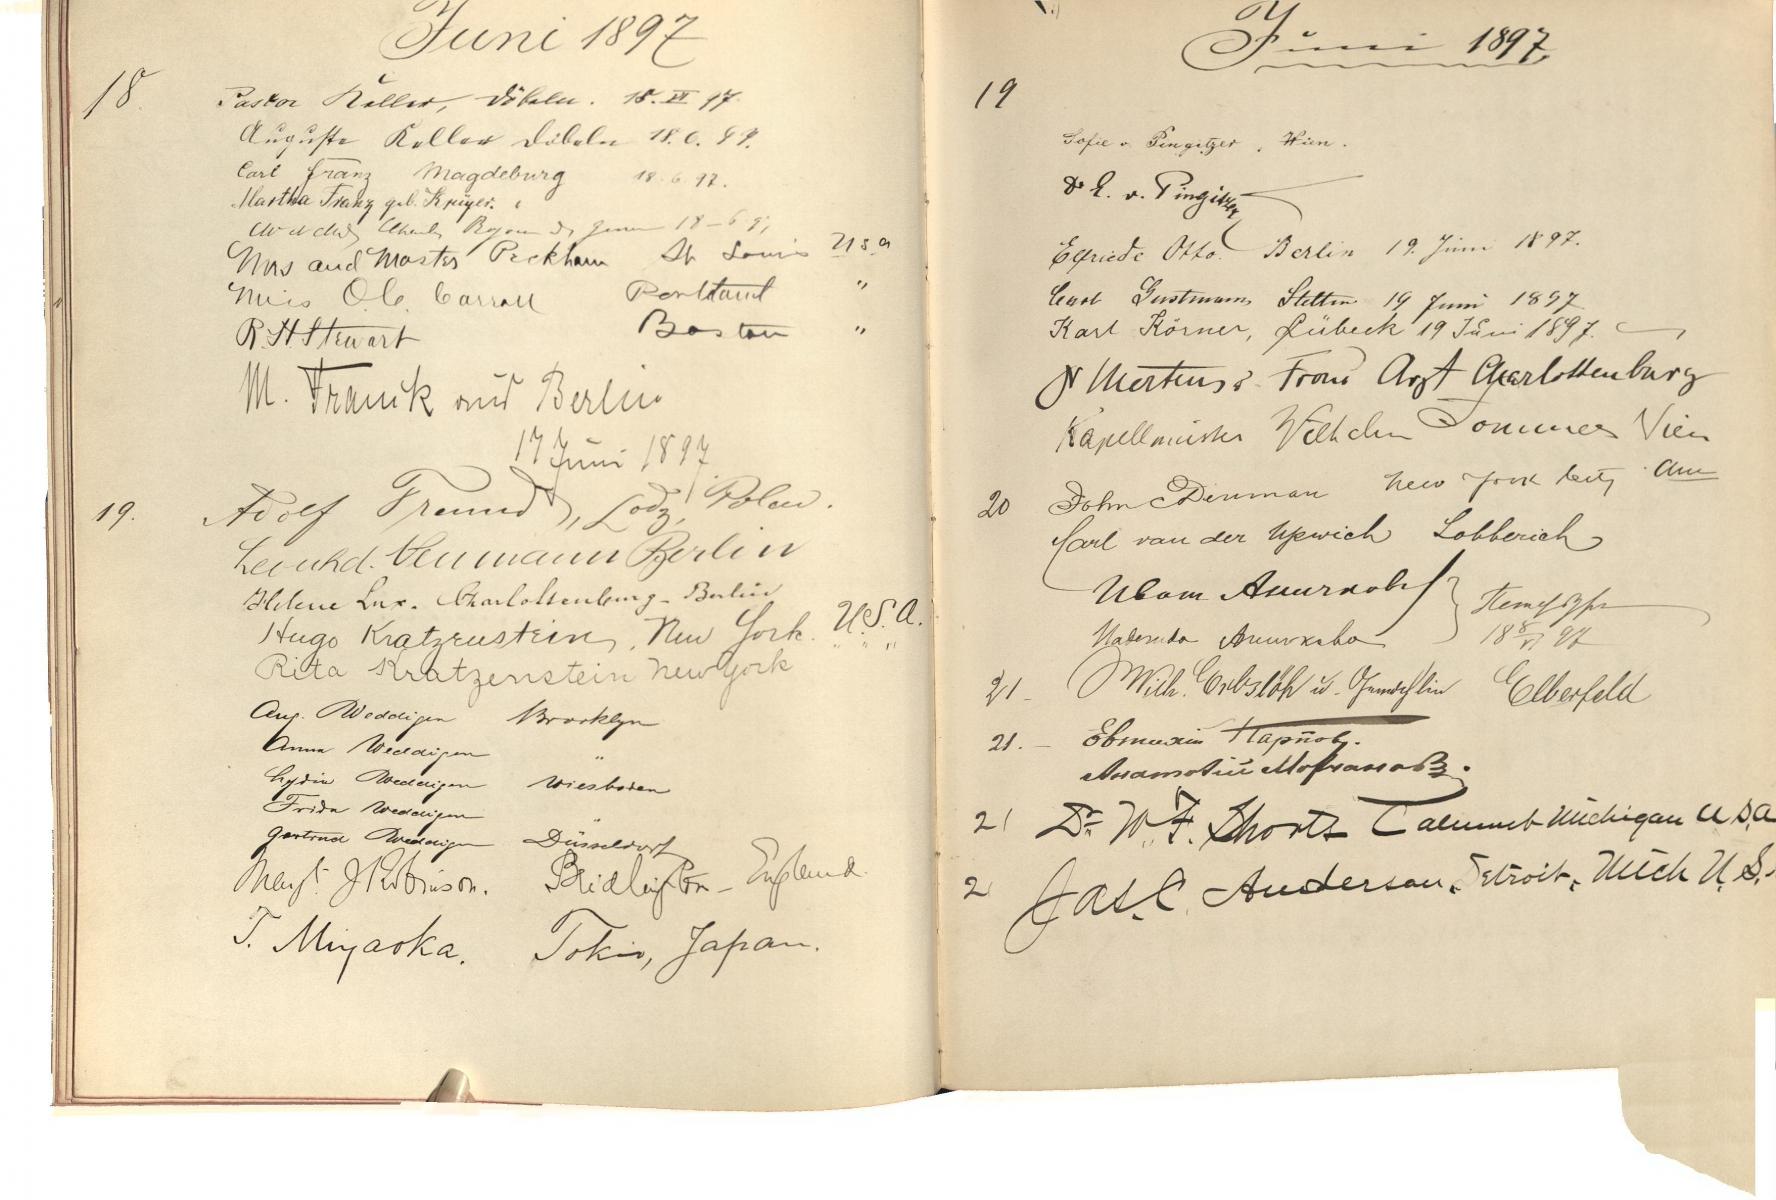 Juni 1897
18.
Pastor Keller, Döbeln. 18. VI 97.
Auguste Keller Döbeln 18. 6. 97.
Carl Franz Magdeburg 18. 6. 97.
Martha Franz geb. Krüger.
18-6-97
Mrs and Master Peckham St Louis U S a
Miss O. C. Carroll Portland "
R. H. Stewart Boston "
M. Franck Berlin
17 Juni 1897.
19.
Adolf Freund, Lodz, Polen.
Leonhd. Neumann Berlin
Helene Lux. Charlottenburg - Berlin
Hugo Kratzenstein, New York. U. S. A.
Rita Kratzenstein New York " " "
Aug. Weddigen Brooklyn
Anna Weddigen "
Lydia Weddigen Wiesbaden
Frida Weddigen "
Gertrud Weddigen Düsseldorf
J Robinson. Bridlington - England.
T. Miyaoka. Tokio, Japan.
Juni 1897.
19
Sofie v. Pingitzer, Wien.
Dr E. v. Pingitzer
Elfriede Otto. Berlin 19. Juni 1897.
Gustmann Stettin 19 Juni 1897
Karl Körner, Lübeck 19 Juni 1897.
Mertens Arzt Charlottenburg
Kapellmeister Wilhelm Sommer Wien
20
John Denman New York City Am
Carl van der Upwich Lobberich
Иван Аничков
Надежда Аничкова
18 97
21 -
Wilh. Erbslöh u. Elberfeld
21. -
Евгений
Анатолий
21 Dr. W. F. Shortz Calumet Michigan U S. a
2 Jas. C. Anderson, Detroit, Mich U. S.